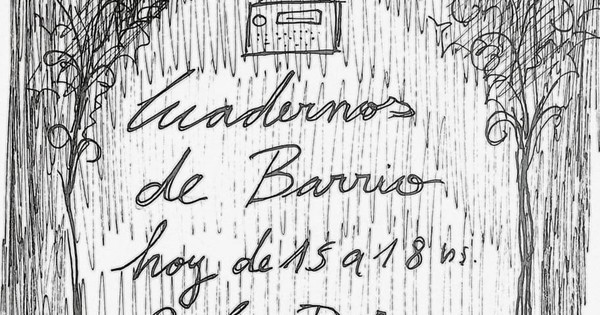 Cuadernos
de Barrio
hoy de 15 a 18 hs.